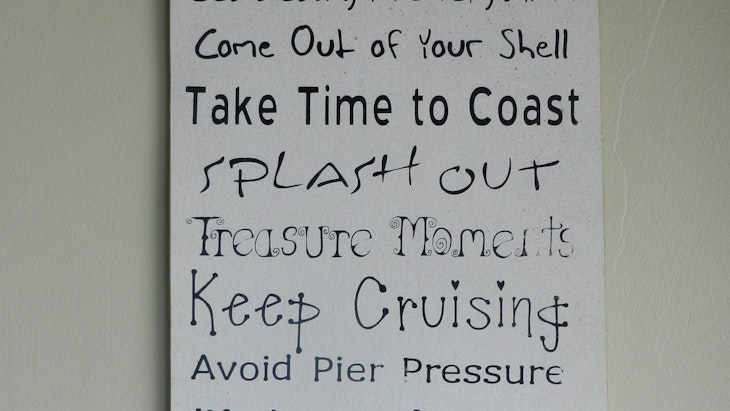 Come Out of Your Shell
Take Time to Coast
SPLASH OUT
Treasure Moments
Keep Cruising
Avoid Pier Pressure